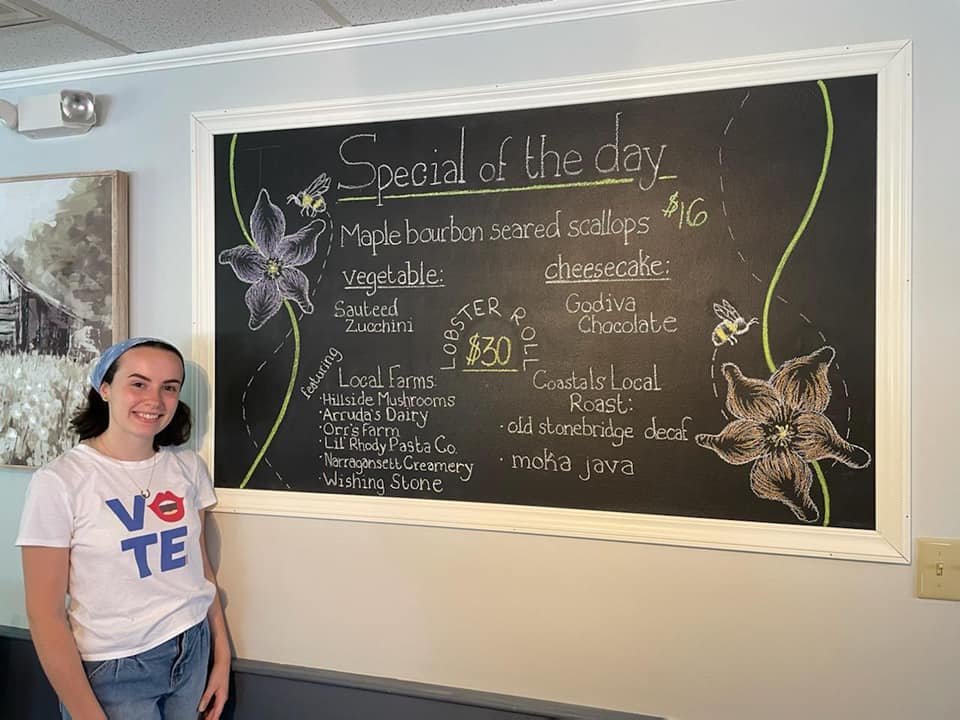 Special of the day
Maple bourbon seared scallops $16
vegetable:
Sauteed
Zucchini
cheesecake:
Godiva
Chocolate
LOBSTER ROLL
$30
featuring
Local Farms:
· Hillside Mushrooms
· Arruda's Dairy
· Orr's Farm
· Lil' Rhody Pasta Co.
· Narragansett Creamery
· Wishing Stone
Coastals Local
Roast:
· old stonebridge decaf
· moka java
VOTE